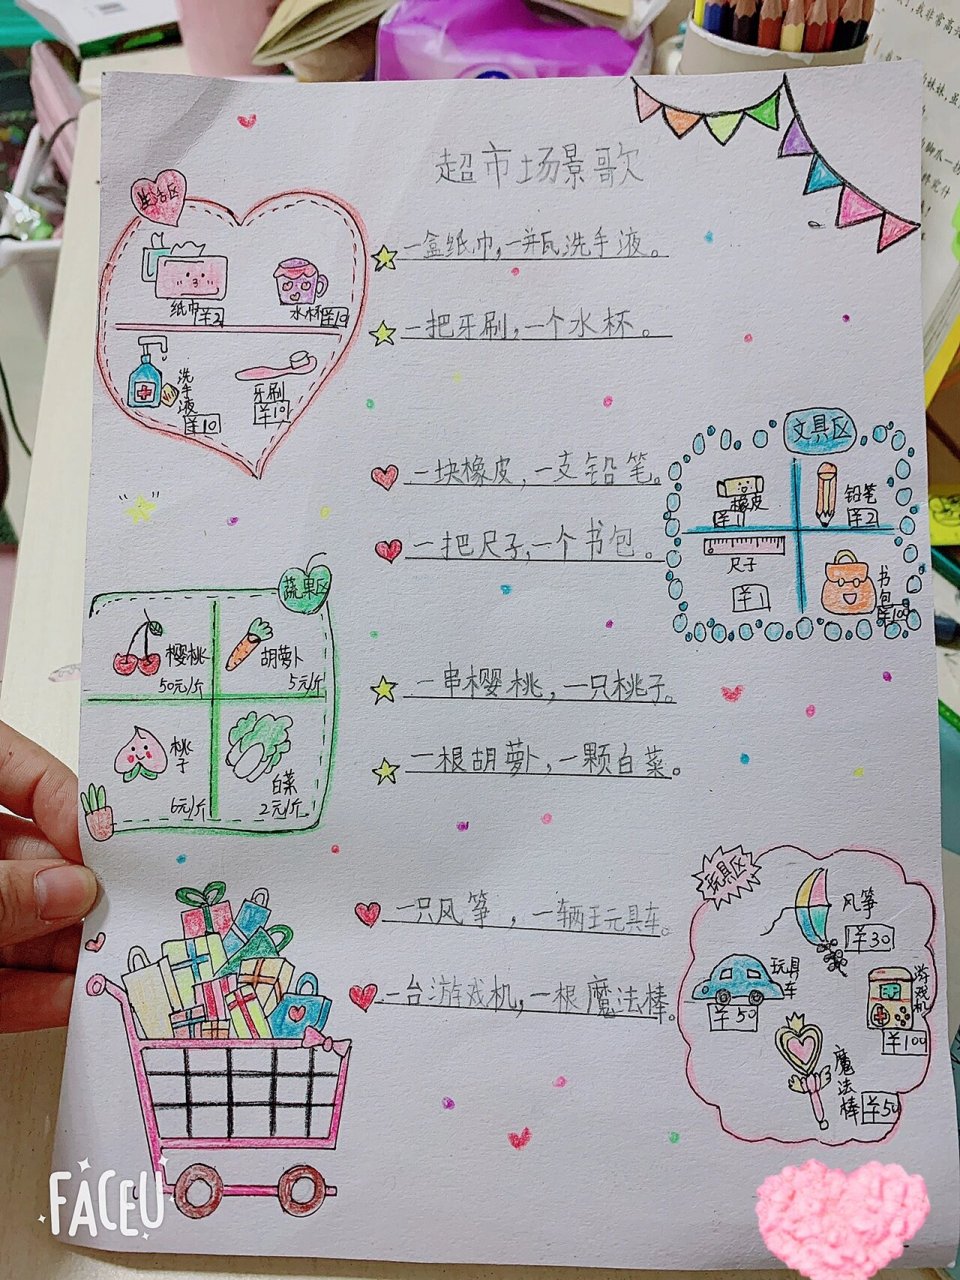 超市场景歌
生活区
纸巾 ¥2
水杯 ¥10
洗手液 ¥10
牙刷 ¥10
一盒纸巾,一瓶洗手液。
一把牙刷,一个水杯。
一块橡皮,一支铅笔。
一把尺子,一个书包。
文具区
橡皮 ¥1
铅笔 ¥2
尺子 ¥1
书包 ¥100
蔬果区
樱桃 50元/斤
胡萝卜 5元/斤
桃子 6元/斤
白菜 2元/斤
一串樱桃,一只桃子。
一根胡萝卜,一颗白菜。
一只风筝,一辆玩具车。
一台游戏机,一根魔法棒。
玩具区
风筝 ¥30
玩具车 ¥50
游戏机 ¥100
魔法棒 ¥50
FACEU